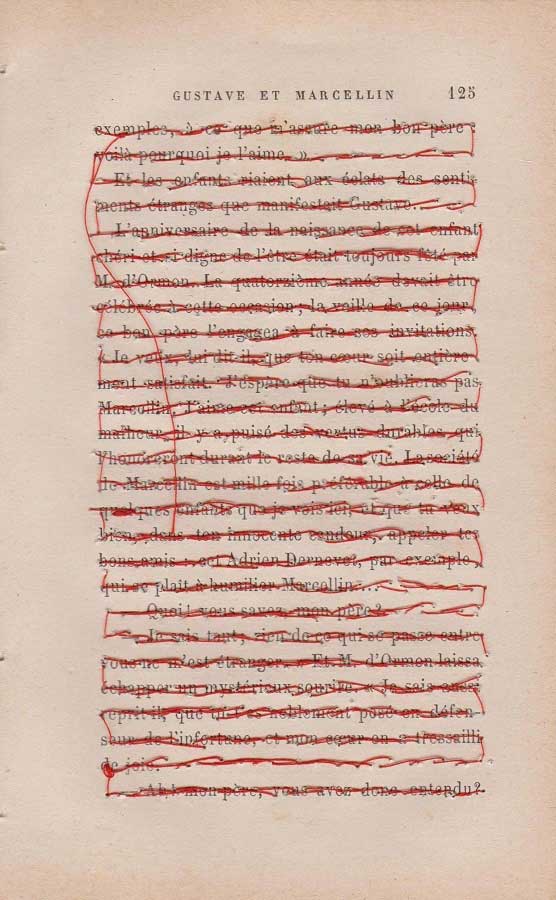 GUSTAVE ET MARCELLIN 125
exemples, à ce que m'assure mon bon père :
voilà pourquoi je l'aime. »
Et les enfants riaient aux éclats des senti-
ments étranges que manifestait Gustave...
L'anniversaire de la naissance de cet enfant
chéri et si digne de l'être était toujours fêté par
M. d'Ormon. La quatorzième année devait être
célébrée à cette occasion; la veille de ce jour,
ce bon père l'engagea à faire ses invitations.
« Je veux, lui dit-il, que ton cœur soit entière-
ment satisfait. J'espère que tu n'oublieras pas
Marcellin. J'aime cet enfant; élevé à l'école du
malheur, il y a puisé des vertus durables qui
l'honoreront durant le reste de sa vie. La société
de Marcellin est mille fois préférable à celle de
quelques enfants que je vois ici, et que tu veux
bien, dans ton innocente candeur, appeler tes
bons amis : cet Adrien Dernevet, par exemple,
qui se plaît à humilier Marcellin...
Quoi! vous savez, mon père?
— Je sais tout; rien de ce qui se passe entre
vous ne m'est étranger. » Et M. d'Ormon laissa
échapper un mystérieux sourire. « Je sais aussi,
reprit-il, que tu t'es noblement posé en défen-
seur de l'infortune, et mon cœur en a tressailli
de joie.
— Ah! mon père, vous avez donc entendu?